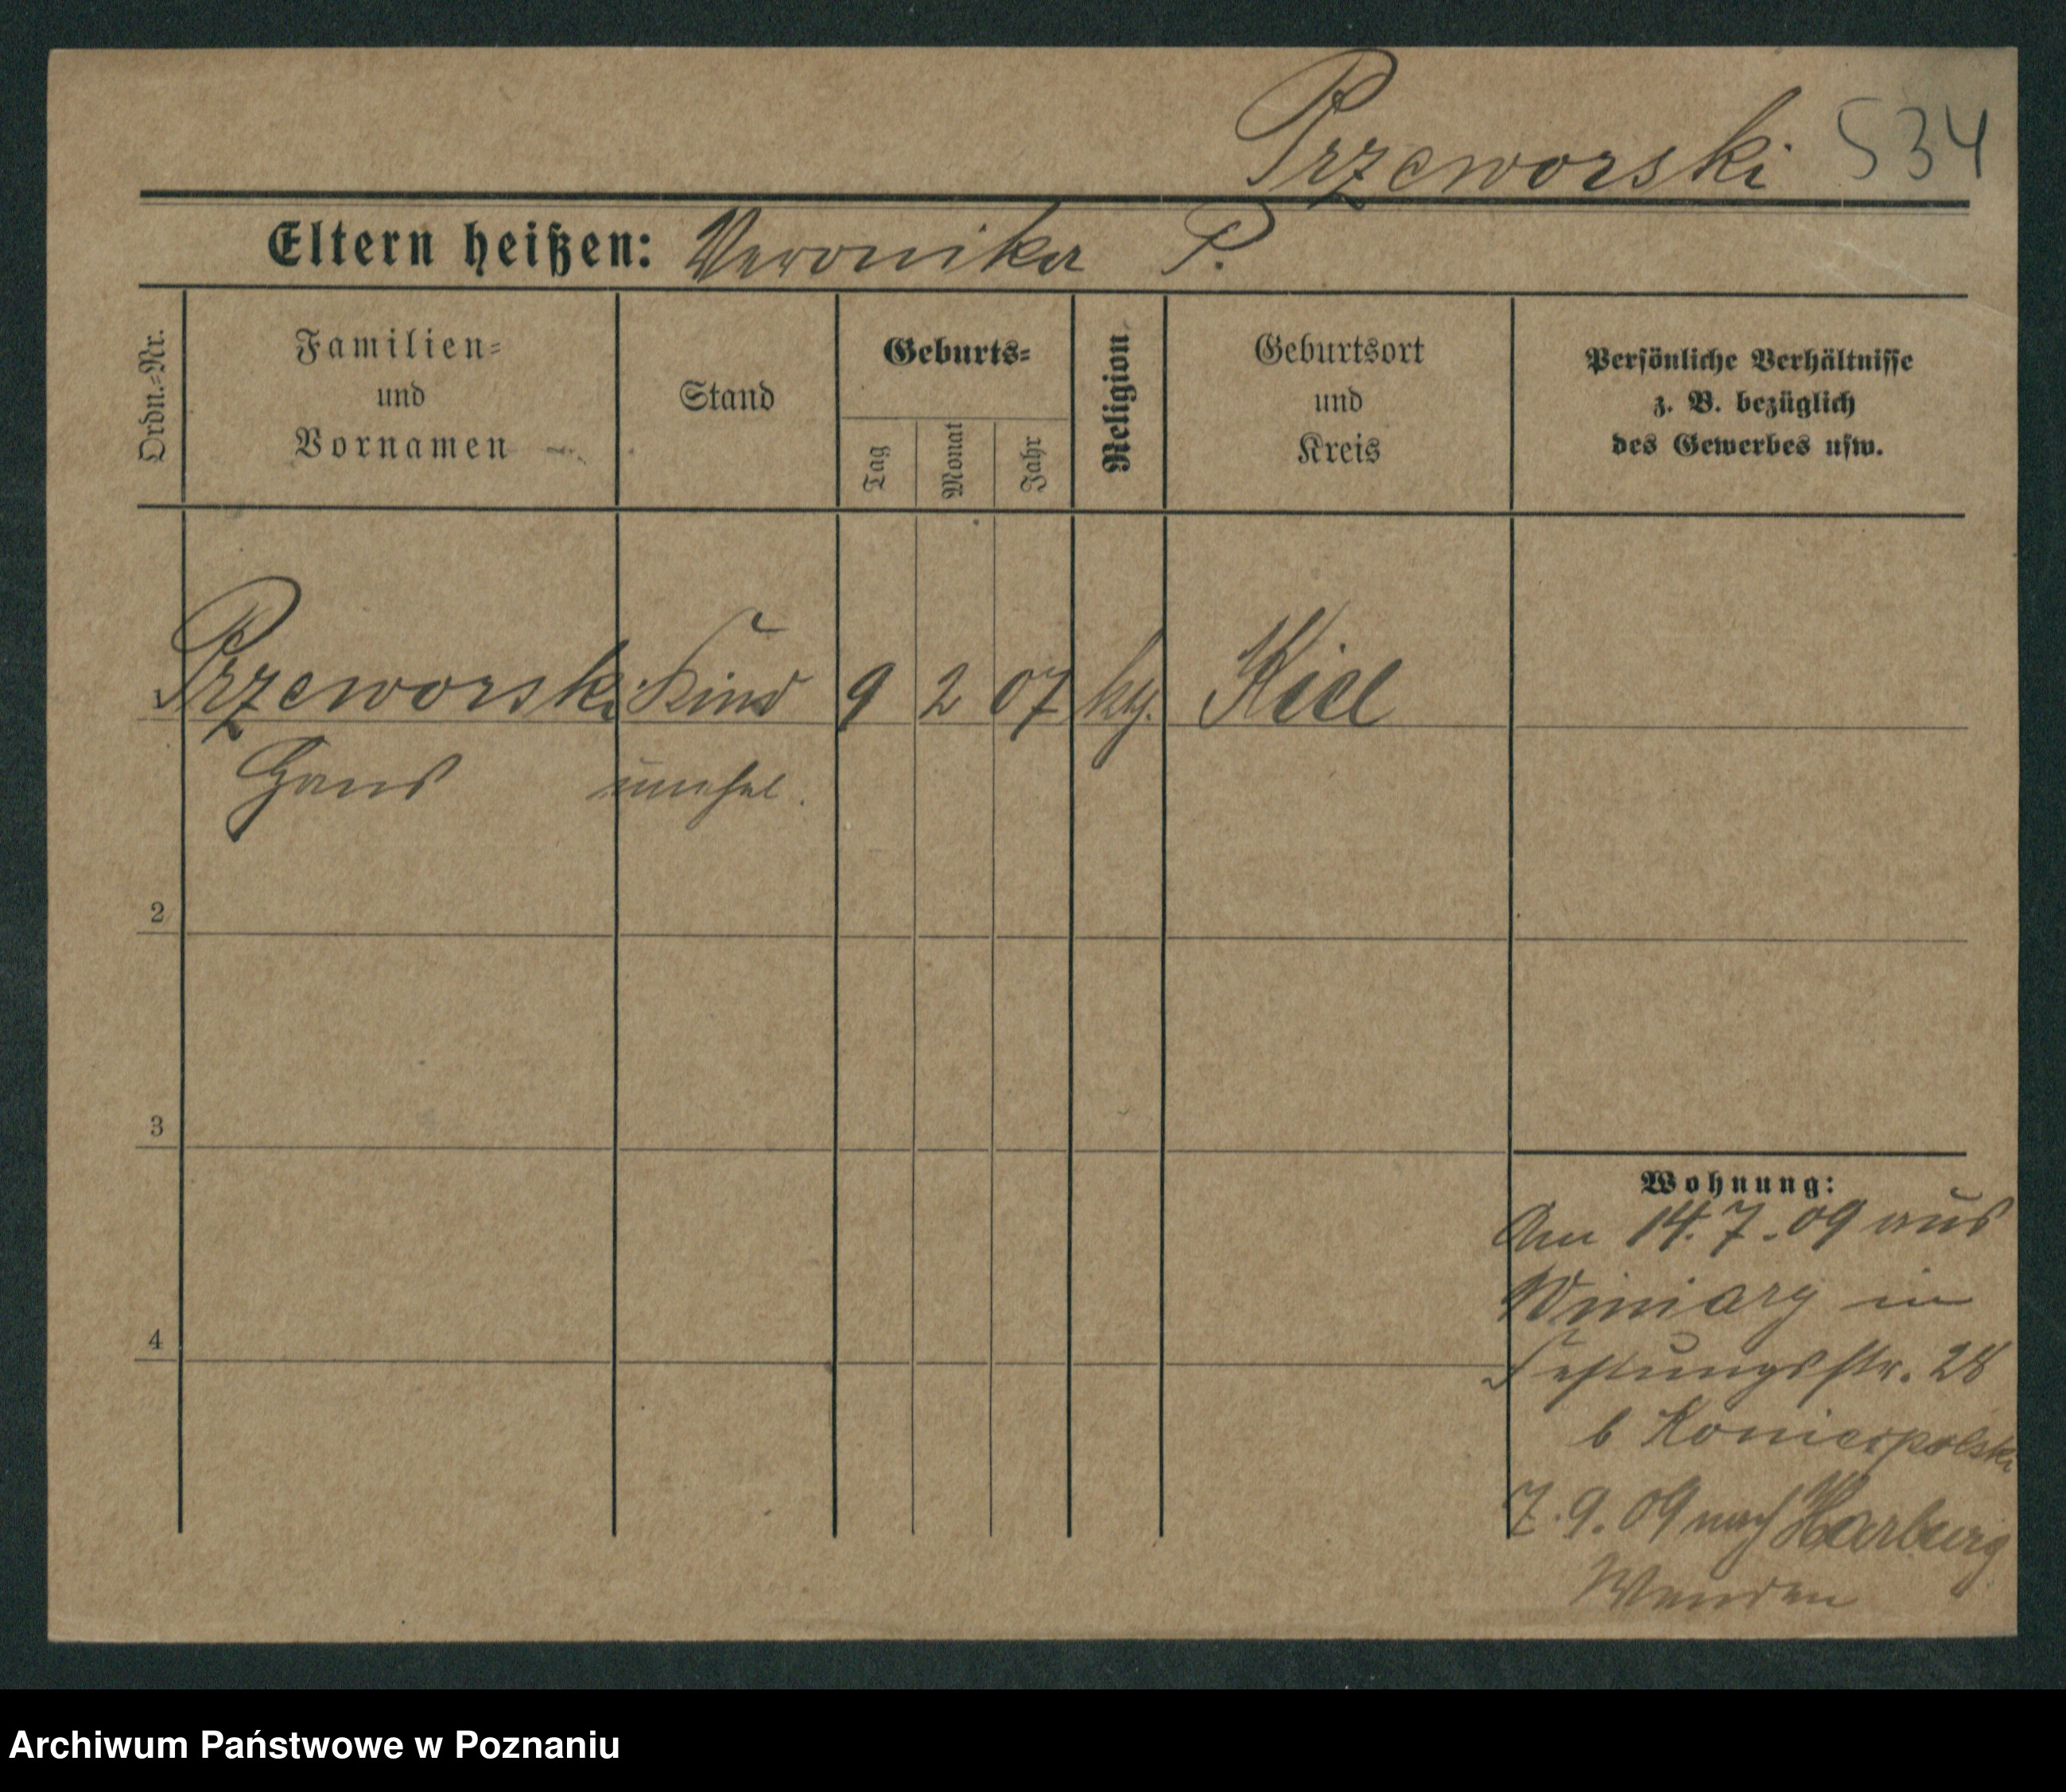 Przeworski 534
Eltern heißen: Veronika P.
Ordn.-Nr.
Familien=
und
Vornamen
Stand
Geburts=
Tag
Monat
Jahr
Religion
Geburtsort
und
Kreis
Persönliche Verhältnisse
z. B. bezüglich
des Gewerbes usw.
Przeworski Kind 9 2 07 kth. Kiel
Hans unehel.
2
3
4
Wohnung:
Am 14.7.09 aus
Winiary in
Festungsstr. 28
b Koniecpolski
7.9.09 nach Harburg
Archiwum Państwowe w Poznaniu